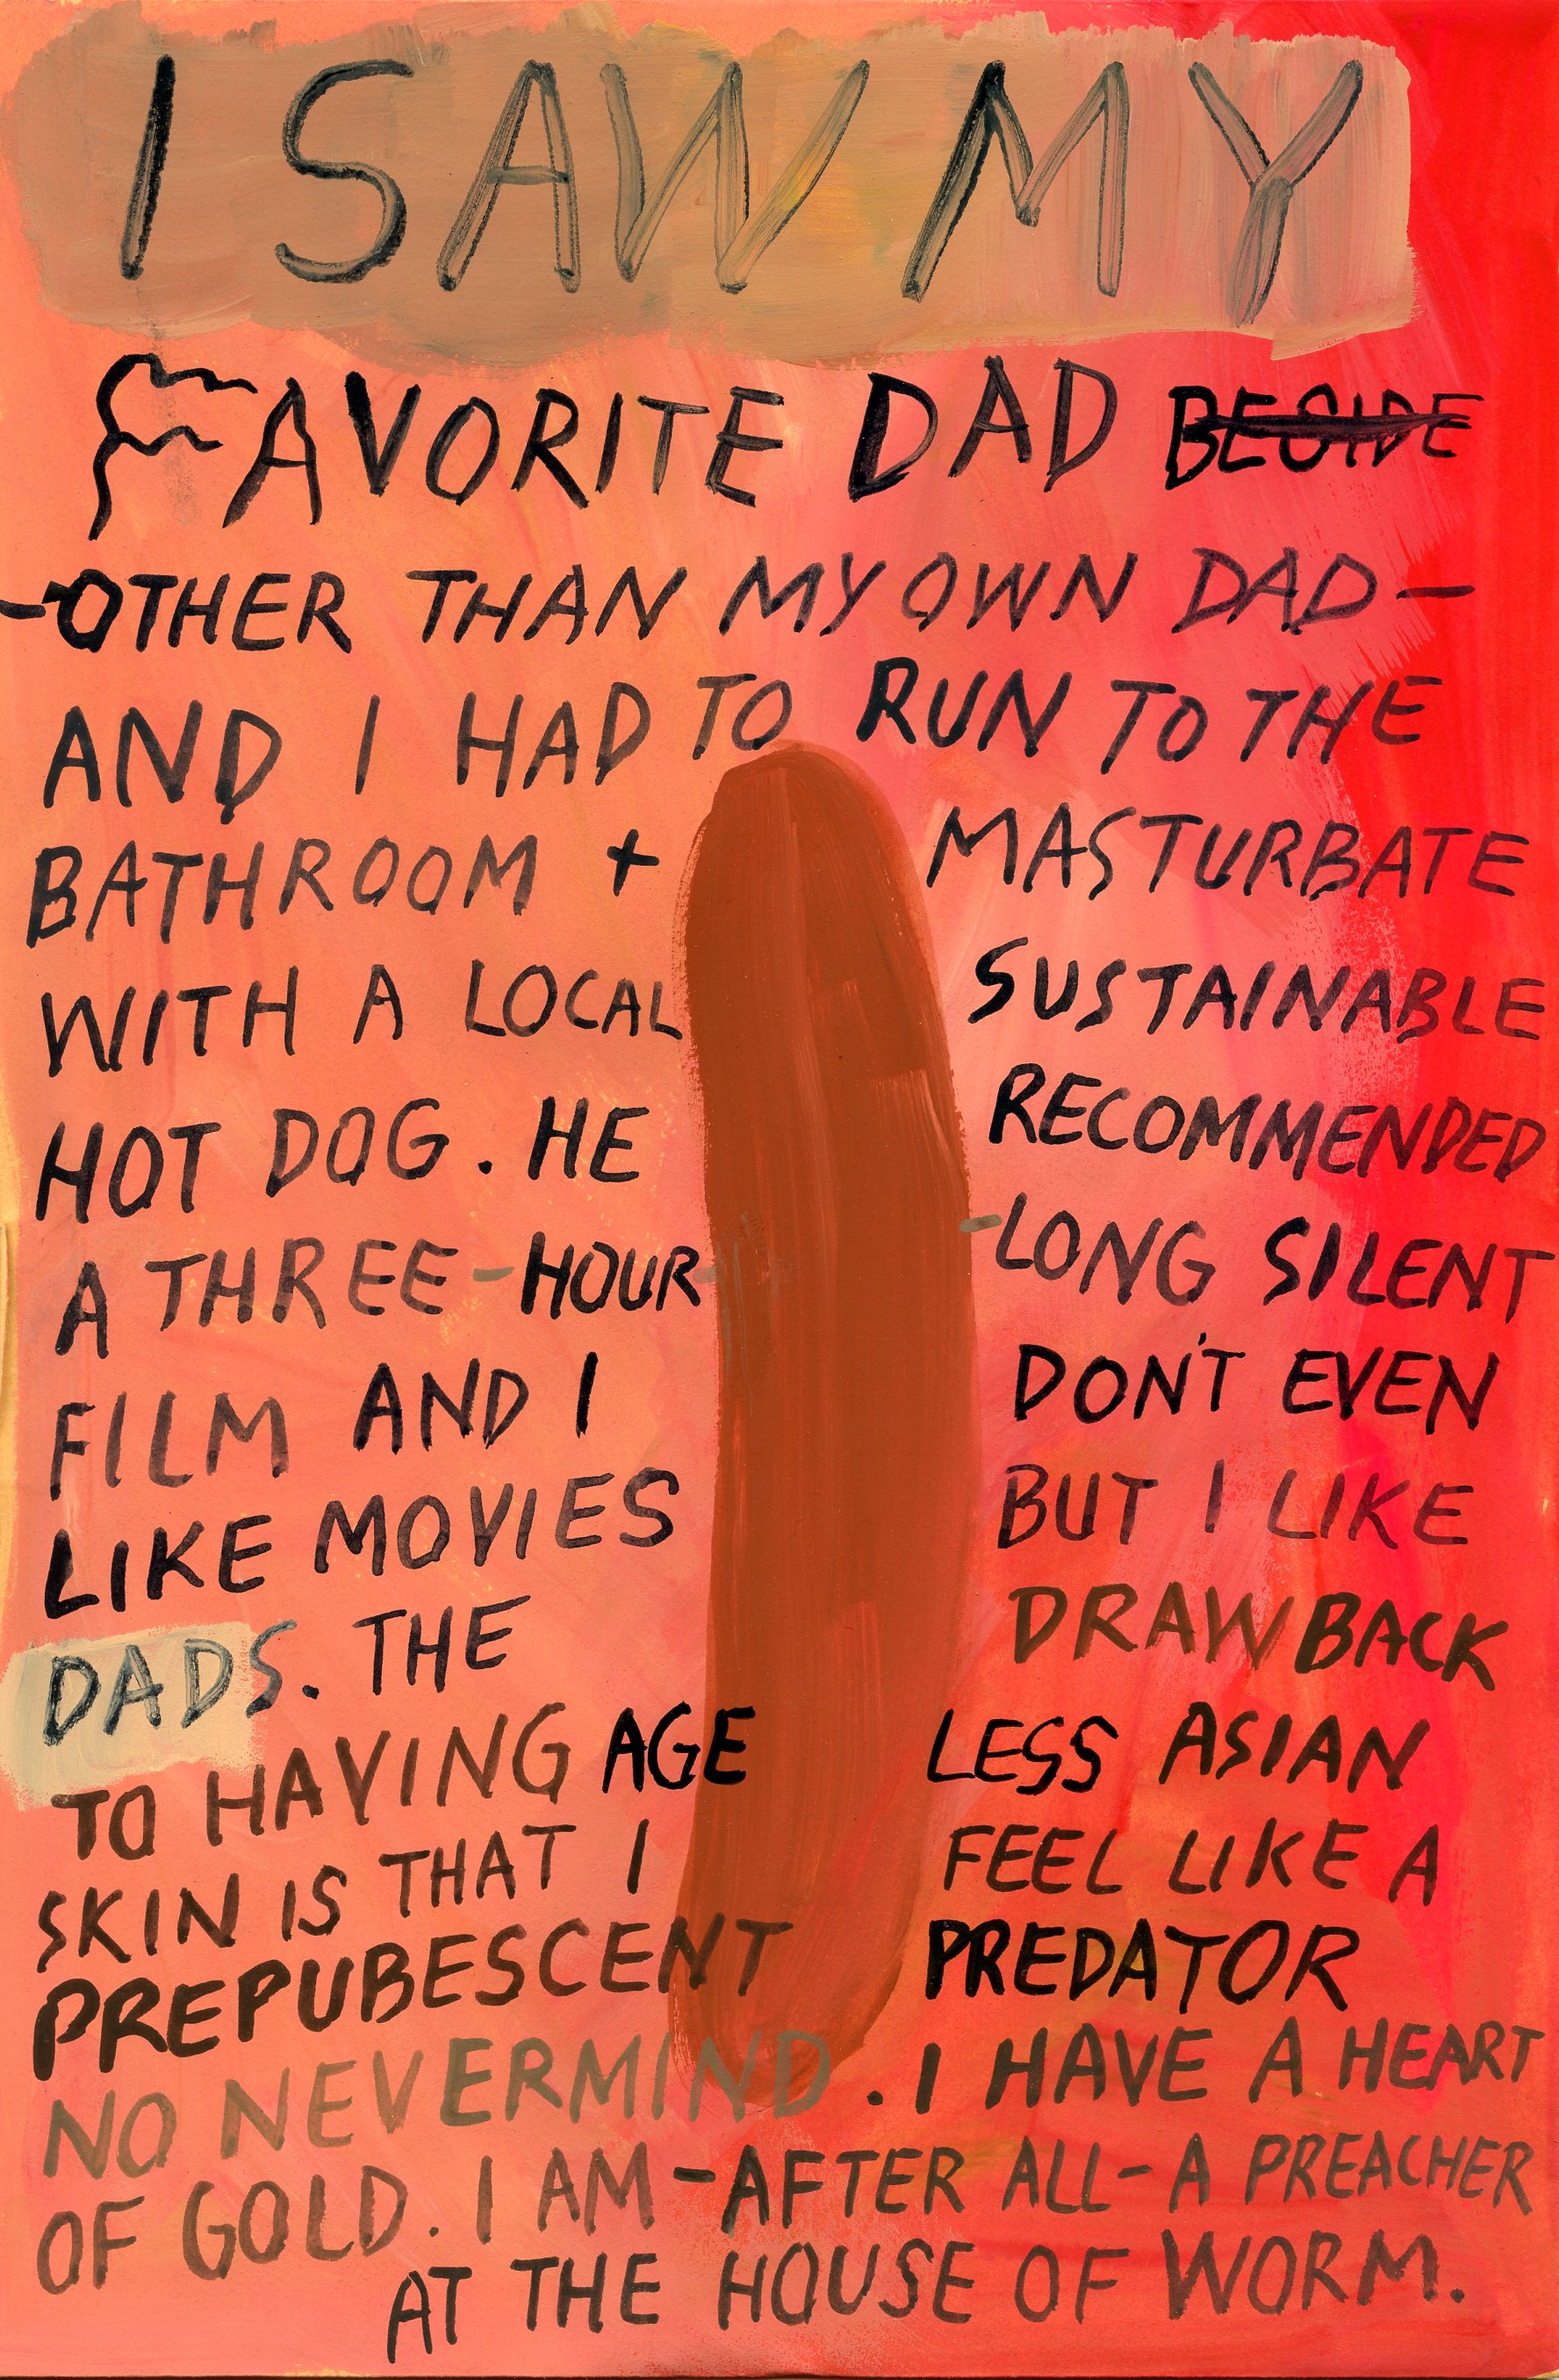 I SAW MY
FAVORITE DAD BESIDE
-OTHER THAN MY OWN DAD-
AND I HAD TO RUN TO THE
BATHROOM + MASTURBATE
WITH A LOCAL SUSTAINABLE
HOT DOG. HE RECOMMENDED
A THREE-HOUR-LONG SILENT
FILM AND I DON'T EVEN
LIKE MOVIES BUT I LIKE
DADS. THE DRAWBACK
TO HAVING AGELESS ASIAN
SKIN IS THAT I FEEL LIKE A
PREPUBESCENT PREDATOR
NO NEVERMIND. I HAVE A HEART
OF GOLD. I AM -AFTER ALL- A PREACHER
AT THE HOUSE OF WORM.